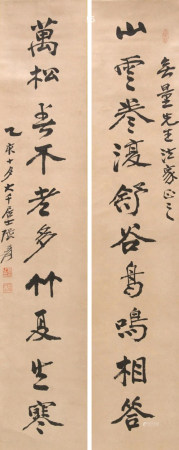 無量先生法家正之
山雲卷復舒谷鳥鳴相答
萬松春不老多竹夏生寒
大千居士張爰